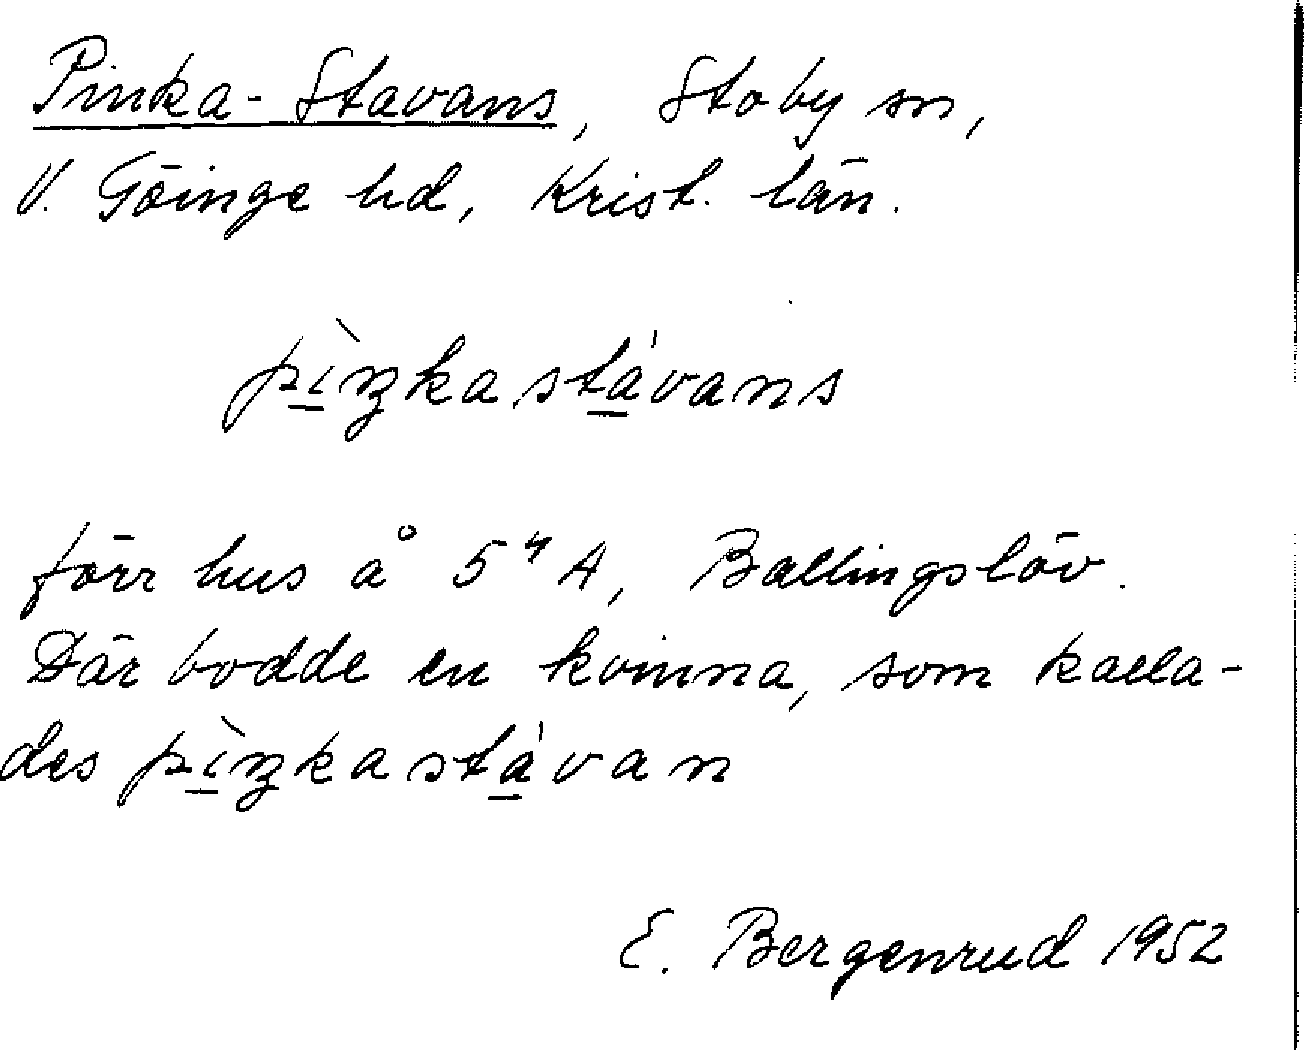 Pinka-Stavans, Stoby sn,
V. Göinge hd, Krist. län.
pì̱ŋkastá̱vans
förr hus å 5⁴ A, Ballingslöv.
Där bodde en kvinna, som kalla-
des pì̱ŋkastá̱van
E. Bergenrud 1952